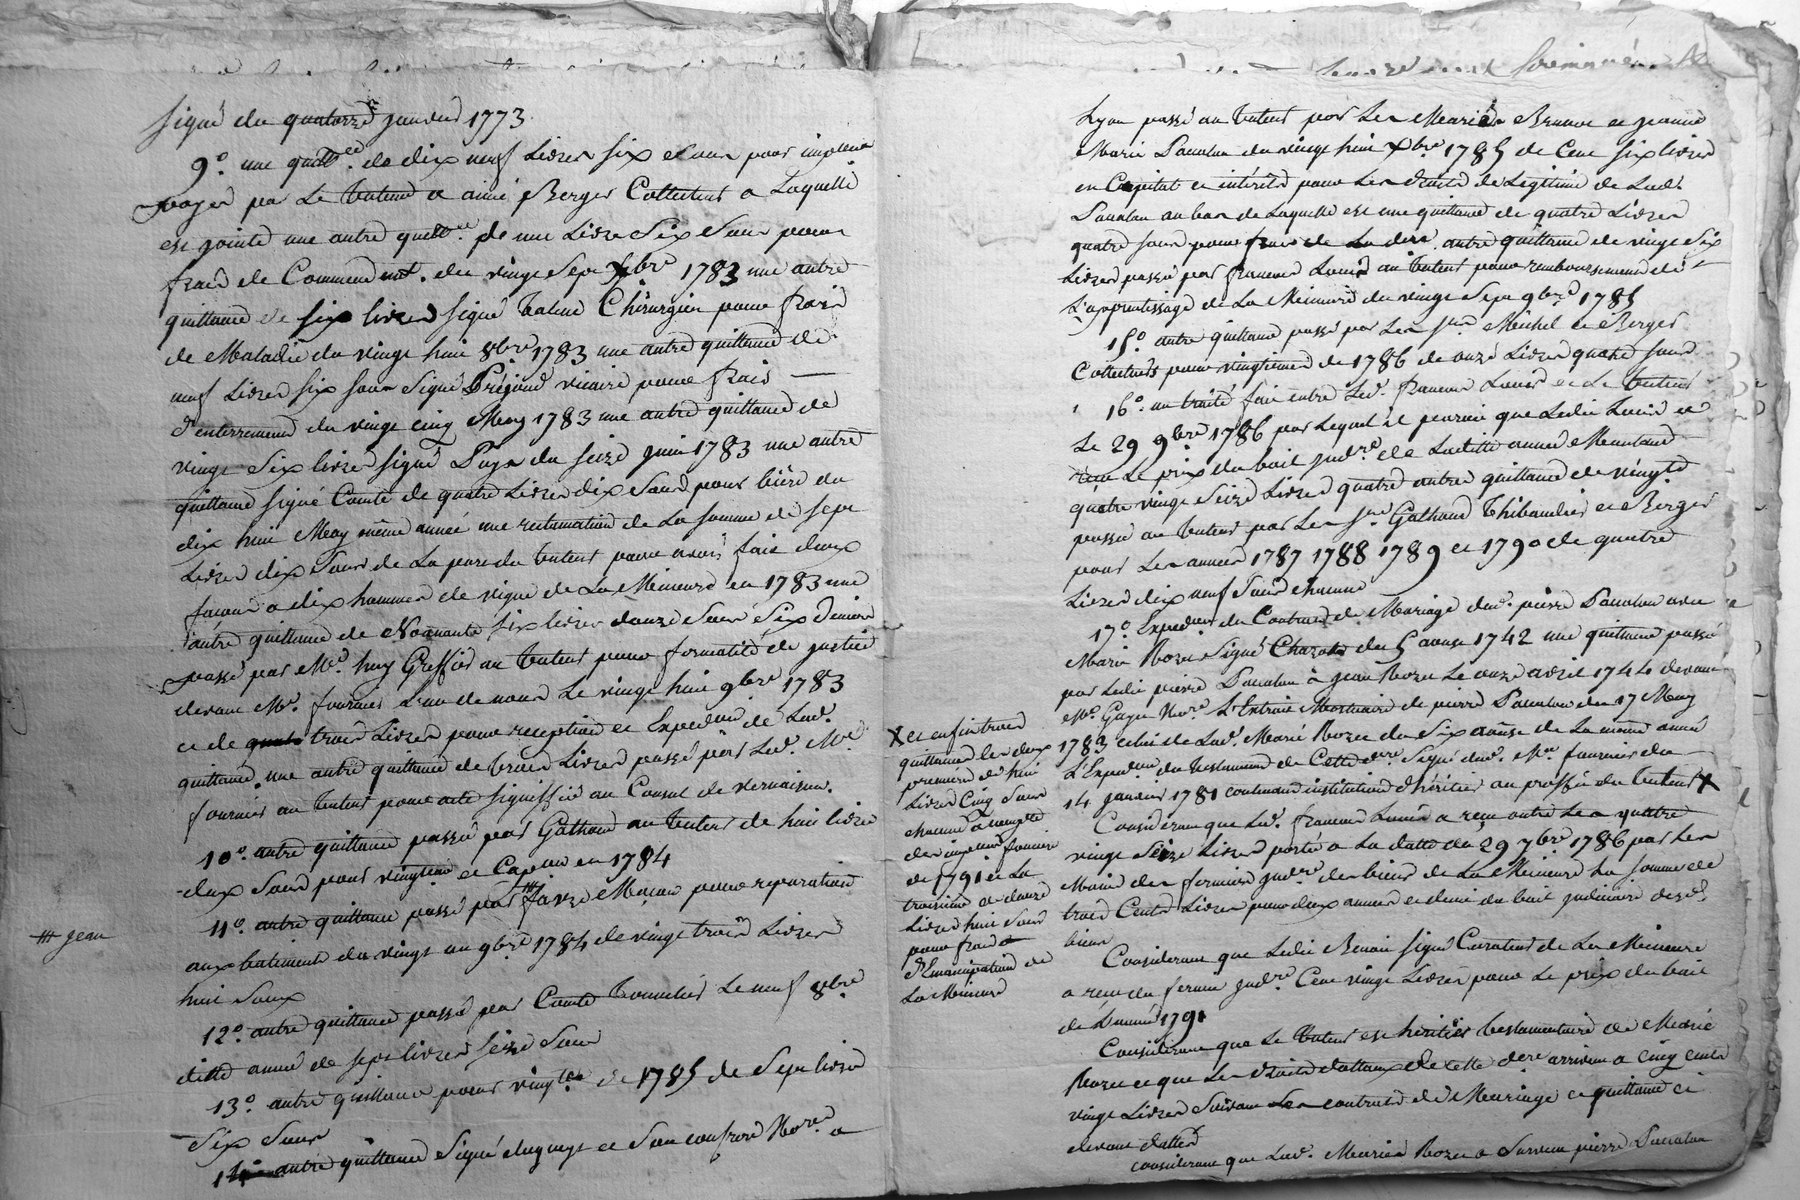 signé du quatorze janvier 1773.
9o. une quittce. de dix neuf Livres six sous pour impôts
payés par Le tuteur a aimé Berger Collecteur a Laquelle
est jointe une autre quittce. de une Livre Six Sous pour
frais de Commendmt. du vingt Sept xbre 1783 une autre
quittance de six livres signé Chirurgien pour frais
de Maladie du vingt huit 8bre 1783 une autre quittance de
neuf Livres six sous Signé vicaire pour frais
d'enterrement du vingt cinq May 1783 une autre quittance de
vingt Six livres signé Puys du seize juin 1783 une autre
quittance signé Comte de quatre Livres dix Sous pour bière du
dix huit May même année une reclamation de La somme de sept
Livres dix Sous de La part du tuteur pour avoir fait deux
façons a dix hommes de vigne de La Mineure en 1783 une
autre quittance de Noonante six livres douze Sous Six deniers
passé par Me. huy Greffier au tuteur pour formalité de justice
devant Me. fournier L'un de nous Le vingt huit 9bre 1783
et de trois Livres pour reception et Expedion de Lad.
quittance. une autre quittance de trois Livres passé par Led. Me.
fournier au tuteur pour acte signiffié au Consul de vernaison.
10o. autre quittance passé par Gathaud au tuteur de huit livres
deux Sous pour vingtieme et Capion en 1784
11o. autre quittance passé par favre Maçon pour reparation
aux batiments du vingt un 9bre 1784 de vingt trois Livres
huit Sous
jean
12o. autre quittance passé par Comte tonnelier Le neuf 8bre
ditte année de sept livres seize Sous
13o. autre quittance pour vingtme de 1785 de Sept livres
Six Sous
14o autre quittance Signé dugueyt et Son confrere Nore. a
Lyon passé au tuteur par Les Mariés Brunot et jeanne
Marie du vingt huit xbre 1785 de Cent six livres
en Capital et intérêts pour Les droits de Legitime de Lad.
au bas de Laquelle est une quittance de quatre Livres
quatre sous pour frais de La dere. autre quittance de vingt Six
Livres passé par francois Louis au tuteur pour remboursement de
L'apprentissage de La Mineure du vingt Sept 9bre 1785
15o. autre quittance passé par Les srs Michel et Berger
Collecteurs pour vingtiemes de 1786 de onze Livres quatre sous
16o. un traité fait entre Led. francois Louis et Le tuteur
Le 29 9bre 1786 par Lequel il paroit que Ledit Louis a
reçu Le prix du bail judre. de Laditte année Montant
quatre vingt Seize Livres quatre autre quittance de vingte.
passé au tuteur par Les srs. Gathaud Thibaudier et Berger
pour Les années 1787 1788 1789 et 1790 de quatre
Livres dix neuf Sous chacune
17o. Expedion du Contrat de Mariage dud. pierre avec
Marie Rozet Signé Charat du 5 aoust 1742 une quittance passé
par Ledit pierre à jean Rozet Le onze avril 1744 devant
Me. Gayet Nore. L'Extrait Mortuaire de pierre du 17 May
1783 celui de Lad. Marie Rozet du Six aoust de La même année
L'Expedion du testament de Cette dere. Signé dud. Me. fournier du
14 janvier 1781 contenant institution d'héritier au proffit du tuteur X
X et enfin trois
quittances les deux
premieres de huit
Livres Cinq Sous
chacune a compte
des impons fonciere
de 1791 et La
troisieme de douze
Livres huit Sous
pour frais
d'Emancipation de
La Mineure
Considerant que Led. francois Louis a reçu outre Les quatre
vingt Seize Livres porté a La datte du 29 9bre 1786 par Les
Mains des fermiers judre. des biens de La Mineure La somme de
trois Cents Livres pour deux années et demie du bail judiciaire desd.
biens
Considerant que Ledit Benoit Signé Curateur de La Mineure
a reçu du fermier judre. Cent vingt Livres pour Le prix du bail
de L'année 1791
Considerant que Le tuteur est héritier testamentaire de Marie
Rozet et que Les droits dottaux de cette dere. arrivent a cinq cents
vingt Livres Suivant Les contrat de Mariage et quittance ci
devant dattés
considerant que Lad. Marie Rozet a Survecu pierre